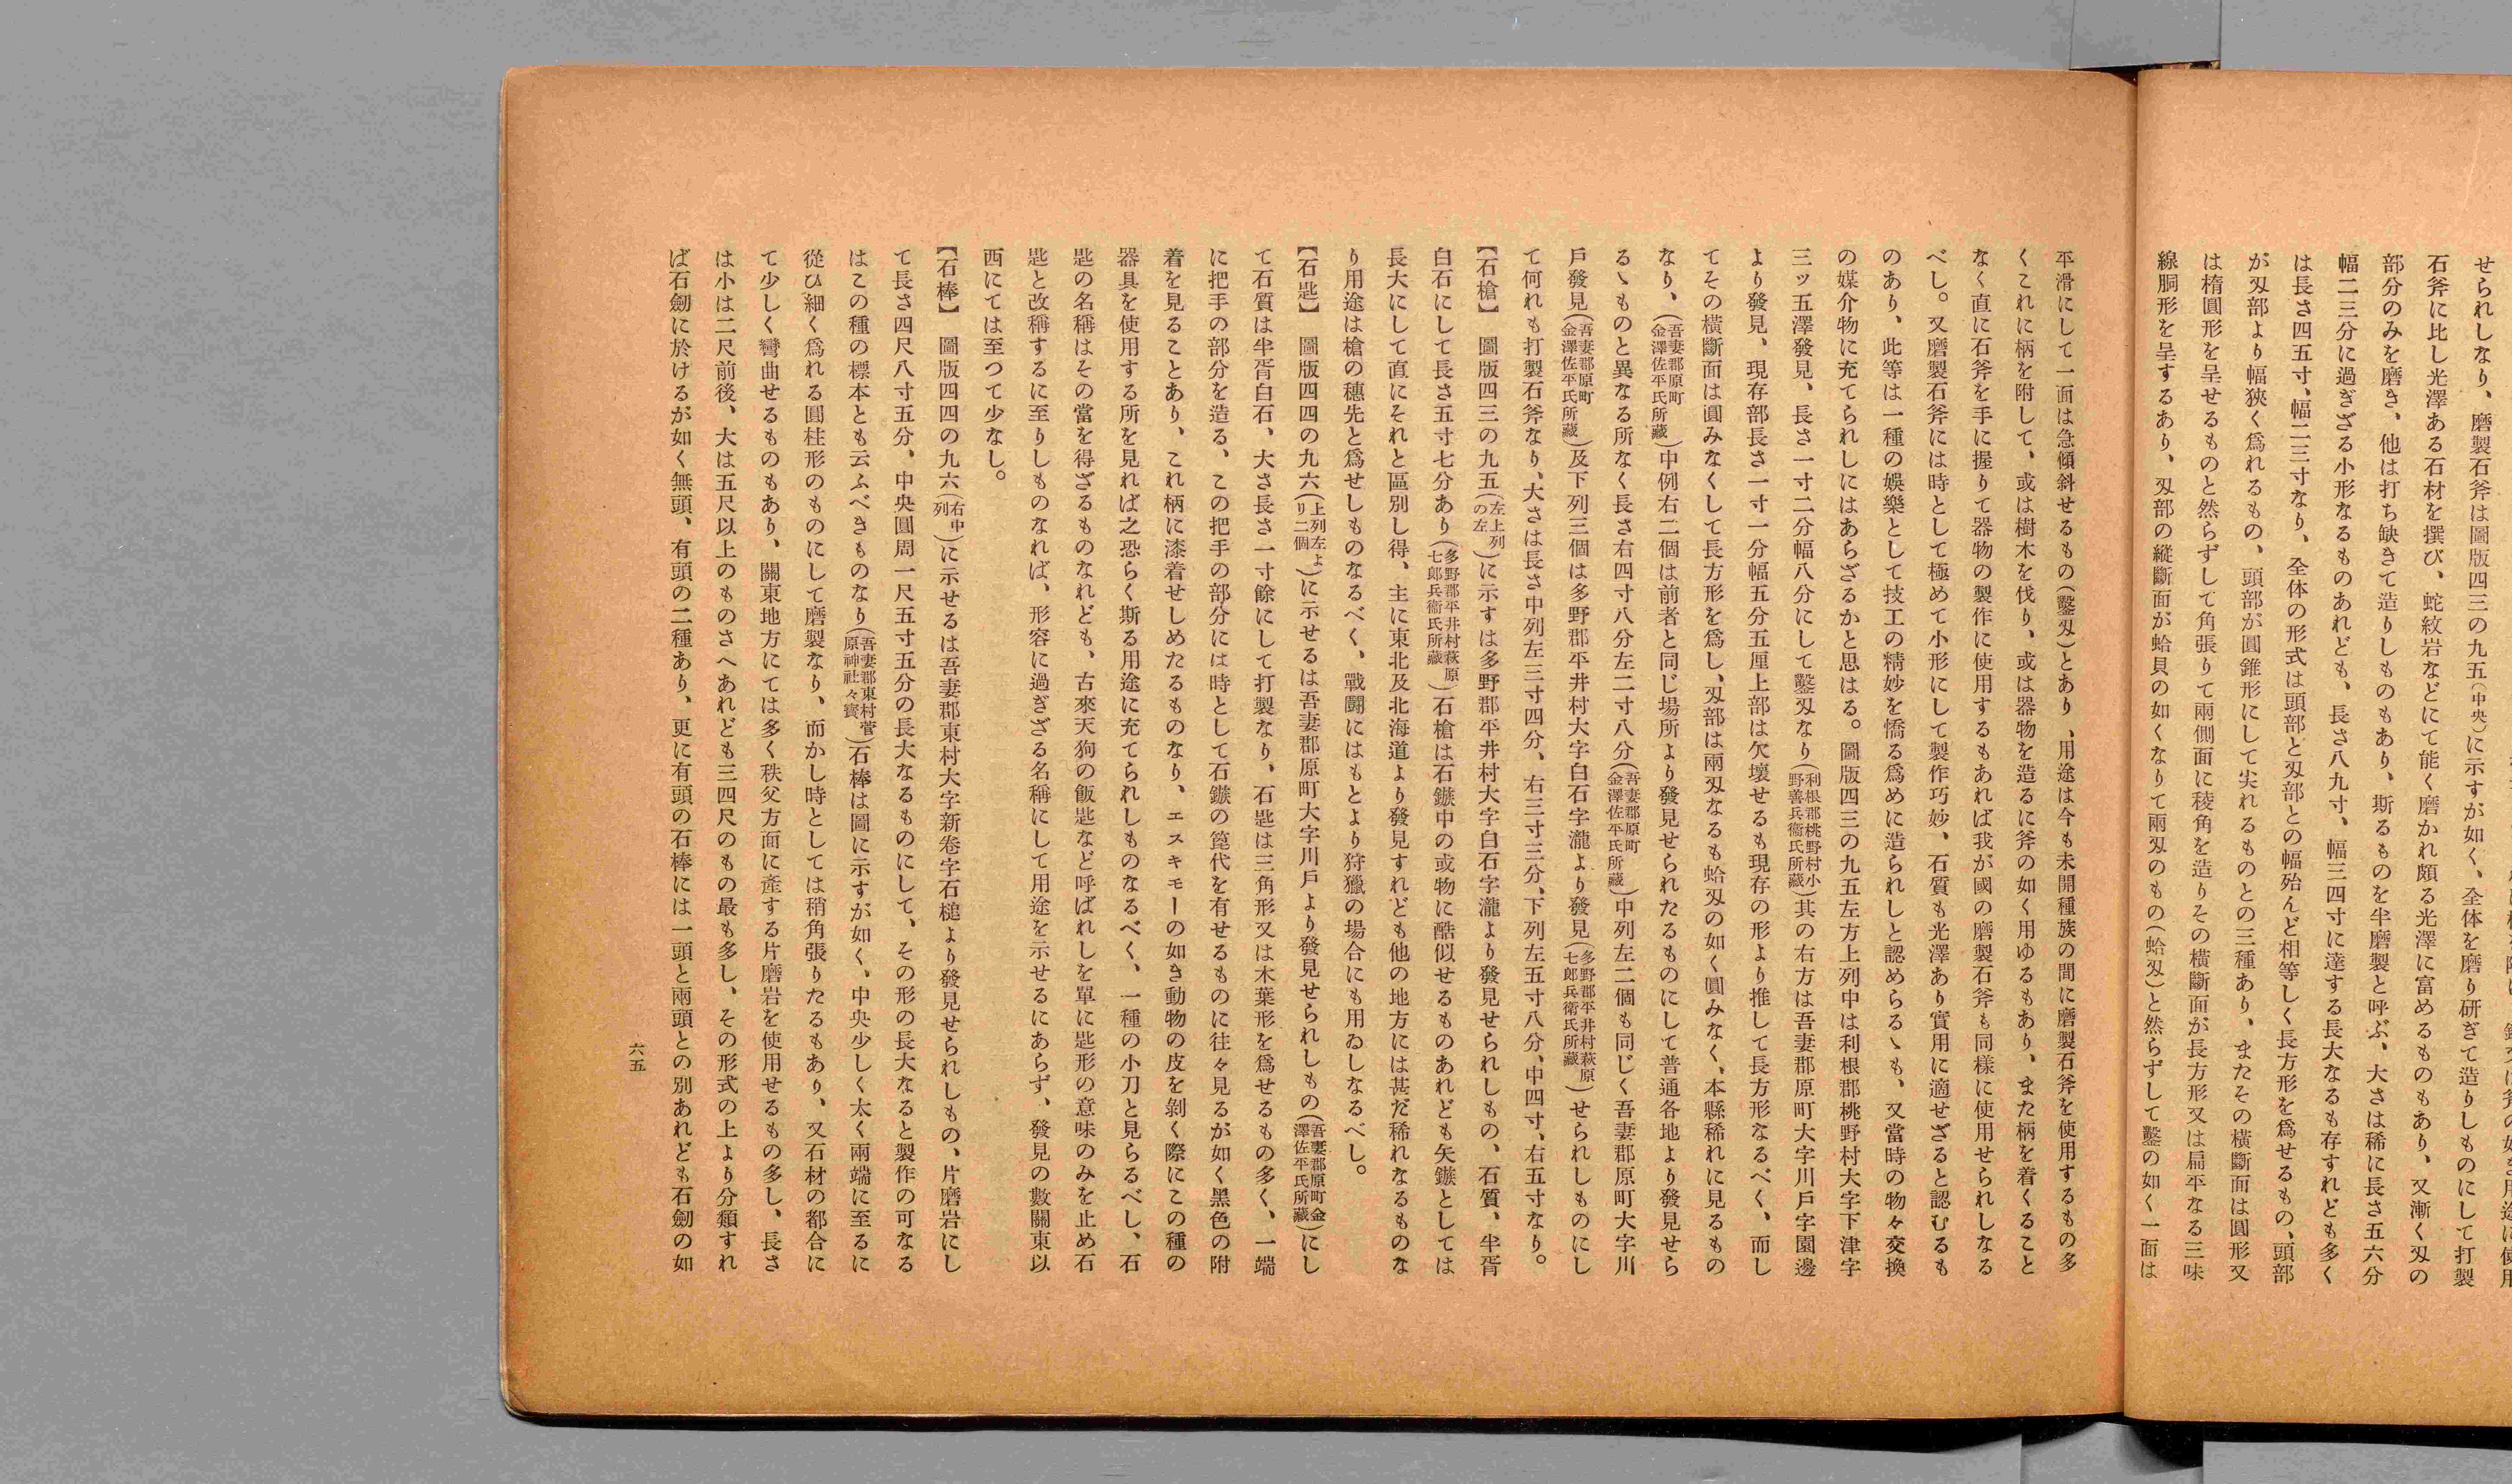 せられしなり、磨製石斧は圖版四三の九五(中央)に示すが如く、全体を磨り研ぎて造りしものにして打製
石斧に比し光澤ある石材を撰び、蛇紋岩などにて能く磨かれ頗る光澤に富めるものもあり、又漸く刄の
部分のみを磨き、他は打ち缺きて造りしものもあり、斯るものを半磨製と呼ぶ、大さは稀に長さ五六分
幅二三分に過ぎざる小形なるものあれども、長さ八九寸、幅三四寸に達する長大なるも存すれども多く
は長さ四五寸、幅二三寸なり、全体の形式は頭部と刄部との幅殆んど相等しく長方形を爲せるもの、頭部
が刄部より幅狹く爲れるもの、頭部が圓錐形にして尖れるものとの三種あり、またその横斷面は圓形又
は楕圓形を呈せるものと然らずして角張りて兩側面に稜角を造りその横斷面が長方形又は扁平なる三味
線胴形を呈するあり、刄部の縱斷面が蛤貝の如くなりて兩刄のもの(蛤刄)と然らずして鑿の如く一面は
平滑にして一面は急傾斜せるもの(鑿刄)とあり、用途は今も未開種族の間に磨製石斧を使用するもの多
くこれに柄を附して、或は樹木を伐り、或は器物を造るに斧の如く用ゆるもあり、また柄を着くること
なく直に石斧を手に握りて器物の製作に使用するもあれば我が國の磨製石斧も同樣に使用せられしなる
べし。又磨製石斧には時として極めて小形にして製作巧妙、石質も光澤あり實用に適せざると認むるも
のあり、此等は一種の娯樂として技工の精妙を憍る爲めに造られしと認めらるゝも、又當時の物々交換
の媒介物に充てられしにはあらざるかと思はる。圖版四三の九五左方上列中は利根郡桃野村大字下津字
三ッ五澤發見、長さ一寸二分幅八分にして鑿刄なり(利根郡桃野村小野善兵衞氏所藏)其の右方は吾妻郡原町大字川戸字園邊
より發見、現存部長さ一寸一分幅五分五厘上部は欠壞せるも現存の形より推して長方形なるべく、而し
てその横斷面は圓みなくして長方形を爲し、刄部は兩刄なるも蛤刄の如く圓みなく、本縣稀れに見るもの
なり、(吾妻郡原町金澤佐平氏所藏)中例右二個は前者と同じ場所より發見せられたるものにして普通各地より發見せら
るゝものと異なる所なく長さ右四寸八分左二寸八分(吾妻郡原町金澤佐平氏所藏)中列左二個も同じく吾妻郡原町大字川
戸發見(吾妻郡原町金澤佐平氏所藏)及下列三個は多野郡平井村大字白石字瀧より發見(多野郡平井村萩原七郎兵衞氏所藏)せられしものにし
て何れも打製石斧なり、大さは長さ中列左三寸四分、右三寸三分、下列左五寸八分、中四寸、右五寸なり。
【石槍】　圖版四三の九五(左上列の左)に示すは多野郡平井村大字白石字瀧より發見せられしもの、石質、半胥
白石にして長さ五寸七分あり(多野郡平井村萩原七郎兵衞氏所藏)石槍は石鏃中の或物に酷似せるものあれども矢鏃としては
長大にして直にそれと區別し得、主に東北及北海道より發見すれども他の地方には甚だ稀れなるものな
り用途は槍の穗先と爲せしものなるべく、戰鬪にはもとより狩獵の場合にも用ゐしなるべし。
【石匙】　圖版四四の九六(上列左より二個)に示せるは吾妻郡原町大字川戸より發見せられしもの(吾妻郡原町金澤佐平氏所藏)にし
て石質は半胥白石、大さ長さ一寸餘にして打製なり、石匙は三角形又は木葉形を爲せるもの多く、一端
に把手の部分を造る、この把手の部分には時として石鏃の箆代を有せるものに往々見るが如く黑色の附
着を見ることあり、これ柄に漆着せしめたるものなり、エスキモーの如き動物の皮を剝く際にこの種の
器具を使用する所を見れば之恐らく斯る用途に充てられしものなるべく、一種の小刀と見らるべし、石
匙の名稱はその當を得ざるものなれども、古來天狗の飯匙など呼ばれしを單に匙形の意味のみを止め石
匙と改稱するに至りしものなれば、形容に過ぎざる名稱にして用途を示せるにあらず、發見の數關東以
西にては至つて少なし。
【石棒】　圖版四四の九六(右中列)に示せるは吾妻郡東村大字新卷字石槌より發見せられしもの、片磨岩にし
て長さ四尺八寸五分、中央圓周一尺五寸五分の長大なるものにして、その形の長大なると製作の可なる
はこの種の標本とも云ふべきものなり(吾妻郡東村菅原神社々寳)石棒は圖に示すが如く、中央少しく太く兩端に至るに
從ひ細く爲れる圓柱形のものにして磨製なり、而かし時としては稍角張りたるもあり、又石材の都合に
て少しく彎曲せるものもあり、關東地方にては多く秩父方面に產する片磨岩を使用せるもの多し、長さ
は小は二尺前後、大は五尺以上のものさへあれども三四尺のもの最も多し、その形式の上より分類すれ
ば石劒に於けるが如く無頭、有頭の二種あり、更に有頭の石棒には一頭と兩頭との別あれども石劒の如
六五